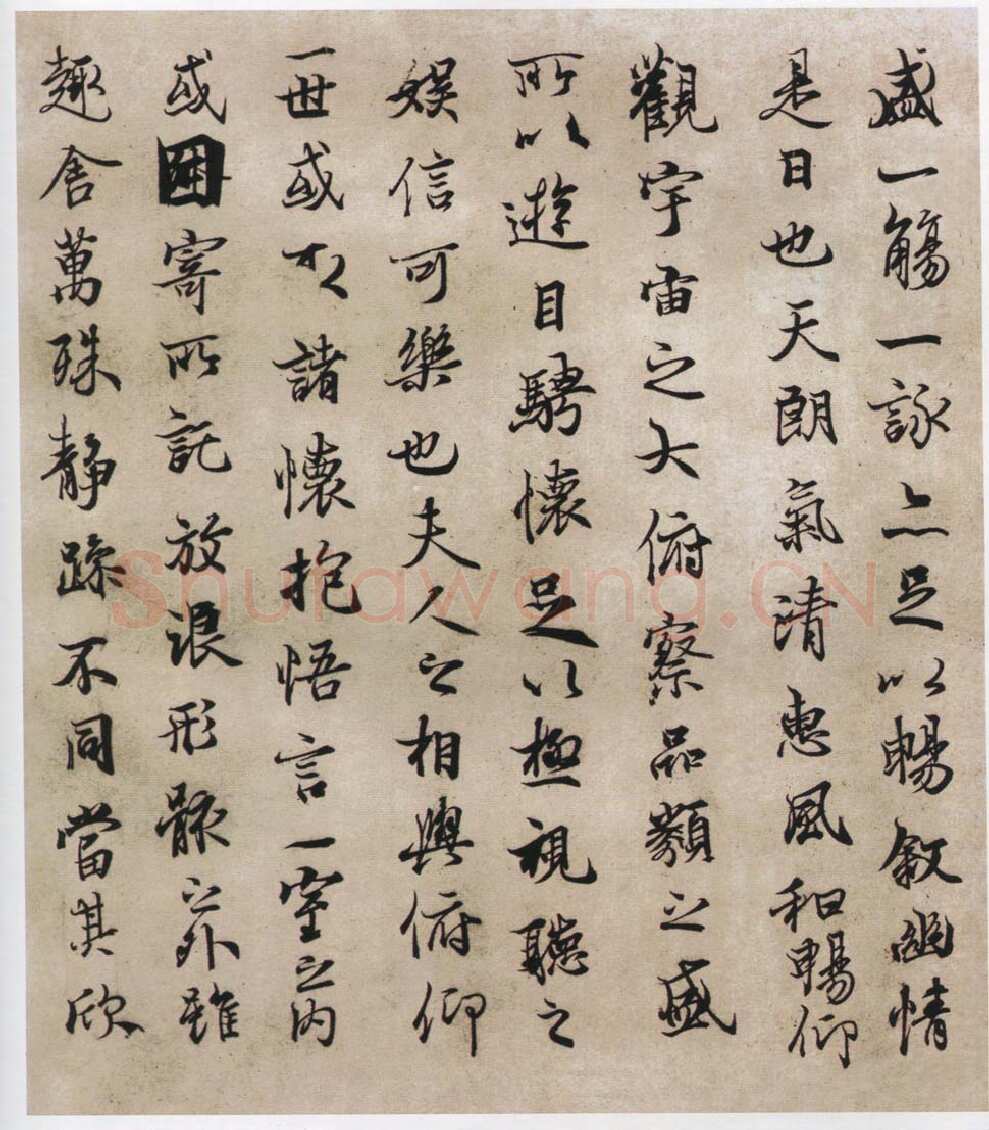 盛一觴一詠亦足以暢叙幽情
是日也天朗氣清惠風和暢仰
觀宇宙之大俯察品類之盛
所以遊目騁懷足以極視聽之
娛信可樂也夫人之相與俯仰
一世或取諸懷抱悟言一室之內
或因寄所託放浪形骸之外雖
趣舍萬殊靜躁不同當其欣
Shufawang.CN